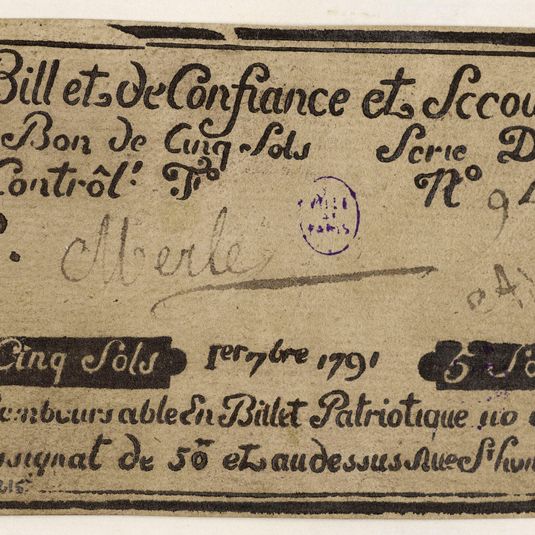 Billet de Confiance et Secou
Bon de Cinq Sols Serie D
Contrôl.r F.o N.o 94
Merle
VILLE DE PARIS
Cinq Sols 1er 7bre 1791 5 So
Remboursable En Billet Patriotique
ssignat de 50 et au dessus Rue St hon